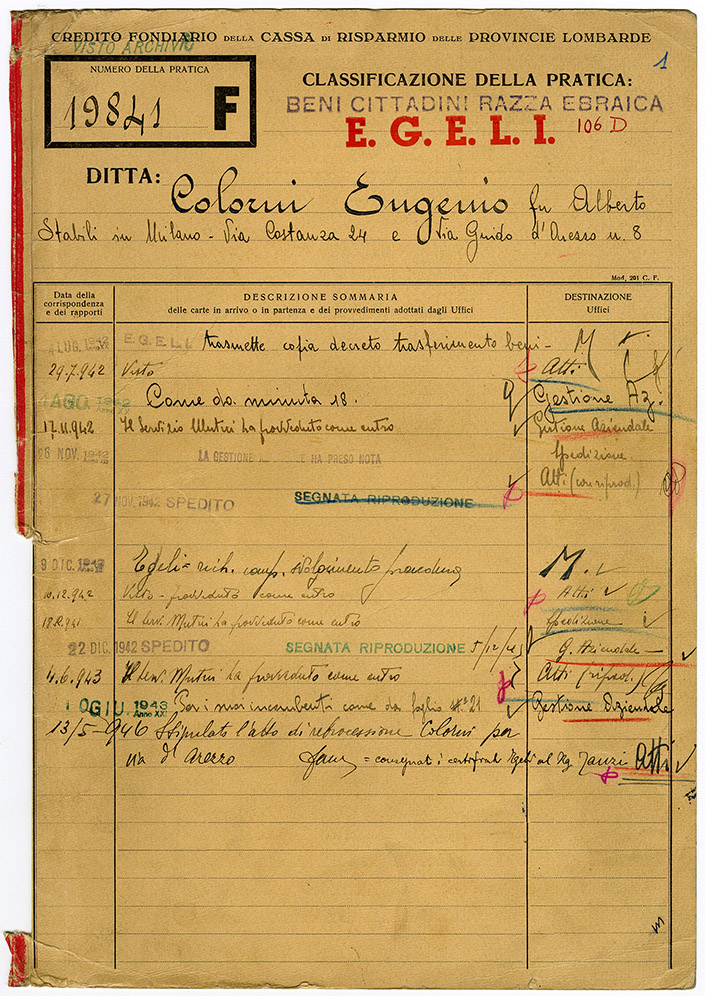 CREDITO FONDIARIO DELLA CASSA DI RISPARMIO DELLE PROVINCIE LOMBARDE
VISTO ARCHIVIO
1
NUMERO DELLA PRATICA
19841 F
CLASSIFICAZIONE DELLA PRATICA:
BENI CITTADINI RAZZA EBRAICA
E. G. E. L. I. 106 D
DITTA: Colorni Eugenio fu Alberto
Stabili in Milano - Via Costanza 24 e Via Guido d'Arezzo n. 8
Mod. 201 C. F.
Data della corrispondenza e dei rapporti
DESCRIZIONE SOMMARIA
delle carte in arrivo o in partenza e dei provvedimenti adottati dagli Uffici
DESTINAZIONE
Uffici
LUG. 1942 E.G.E.L.I. trasmette copia decreto trasferimento beni - M
29.7.942 Visto Atti
AGO. 1942 Come da minuta 18. Gestione Az.
17.11.942 Il Servizio Mutui ha provveduto come entro Gestione Aziendale
26 NOV. 1942 LA GESTIONE AZIENDALE HA PRESO NOTA Spedizione
Atti (con riprod.)
27 NOV. 1942 SPEDITO SEGNATA RIPRODUZIONE
9 DIC. 1942 Egeli = rich. comp. svolgimento procedura M.
10.12.942 Visto - provveduto come entro Atti
Il Serv. Mutui ha provveduto come entro Spedizione
22 DIC. 1942 SPEDITO SEGNATA RIPRODUZIONE G. Aziendale
4.6.943 Il Serv. Mutui ha provveduto come entro Atti (riprod.)
10 GIU 1943 Anno XXI Per i suoi incombenti come da foglio n° 21 Gestione Aziendale
13/5-946 Stipulato l'atto di retrocessione Colorni per
via d'Arezzo = consegnati i certificati Egeli al Rg. Zanzi Atti